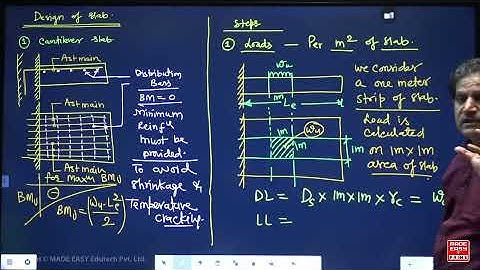 Design of slab.
① Cantilever slab
Ast main
Distribution
Bars
BM = 0
Minimum
Reinf
must be
provided.
To avoid
shrinkage &
Temperature
cracking.
Ast main
Ast main
for maxm BMu
BMu
BMu = (Wu · Le² / 2)
© MADE EASY Edutech Pvt. Ltd.
Steps
① Loads — Per m² of slab.
wu
Le
1m
wu
1m
1m
1m
we consider
a one meter
strip of slab.
Load is
calculated
on 1m x 1m
area of slab
DL = Ds x 1m x 1m x γc = w
LL =
MADE EASY